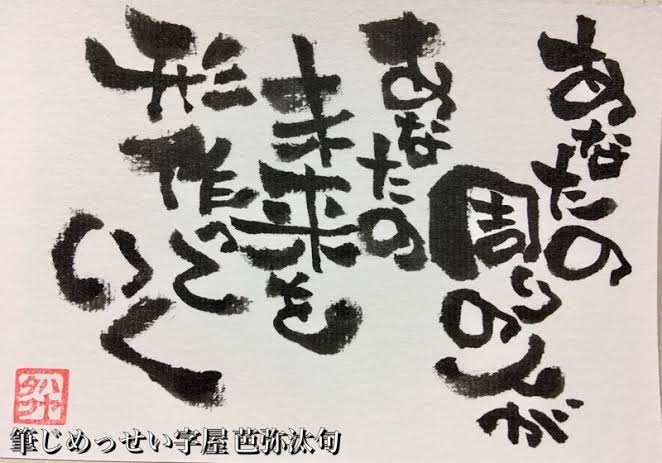 あなたの
周りの人が
あなたの
未来を
形作って
いく
ハヤ
タク
筆じめっせい字屋 芭弥汰句